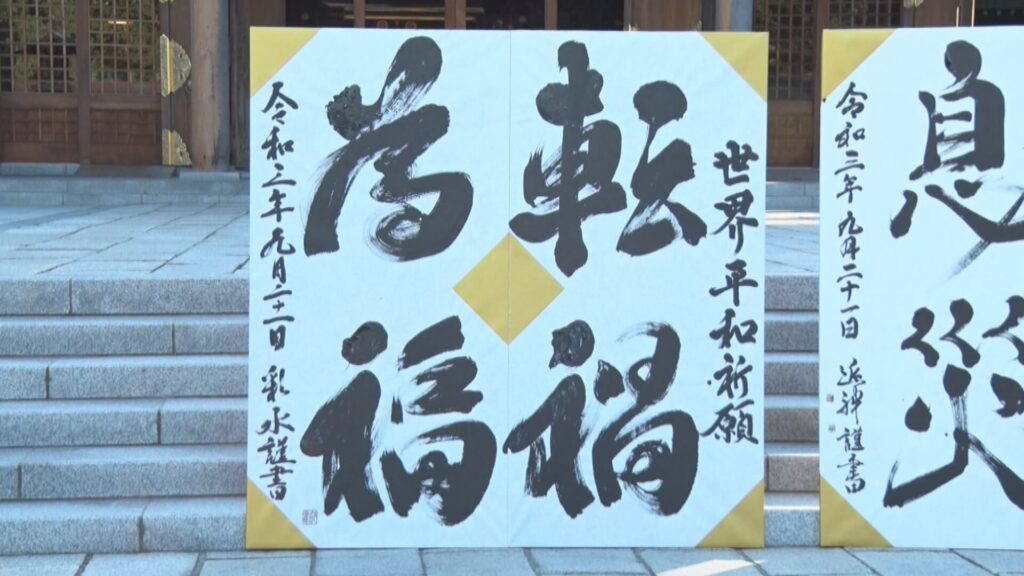 息災
令和三年九月二十一日 謹書
世界平和祈願
転禍
為福
令和三年九月二十一日 彩水謹書